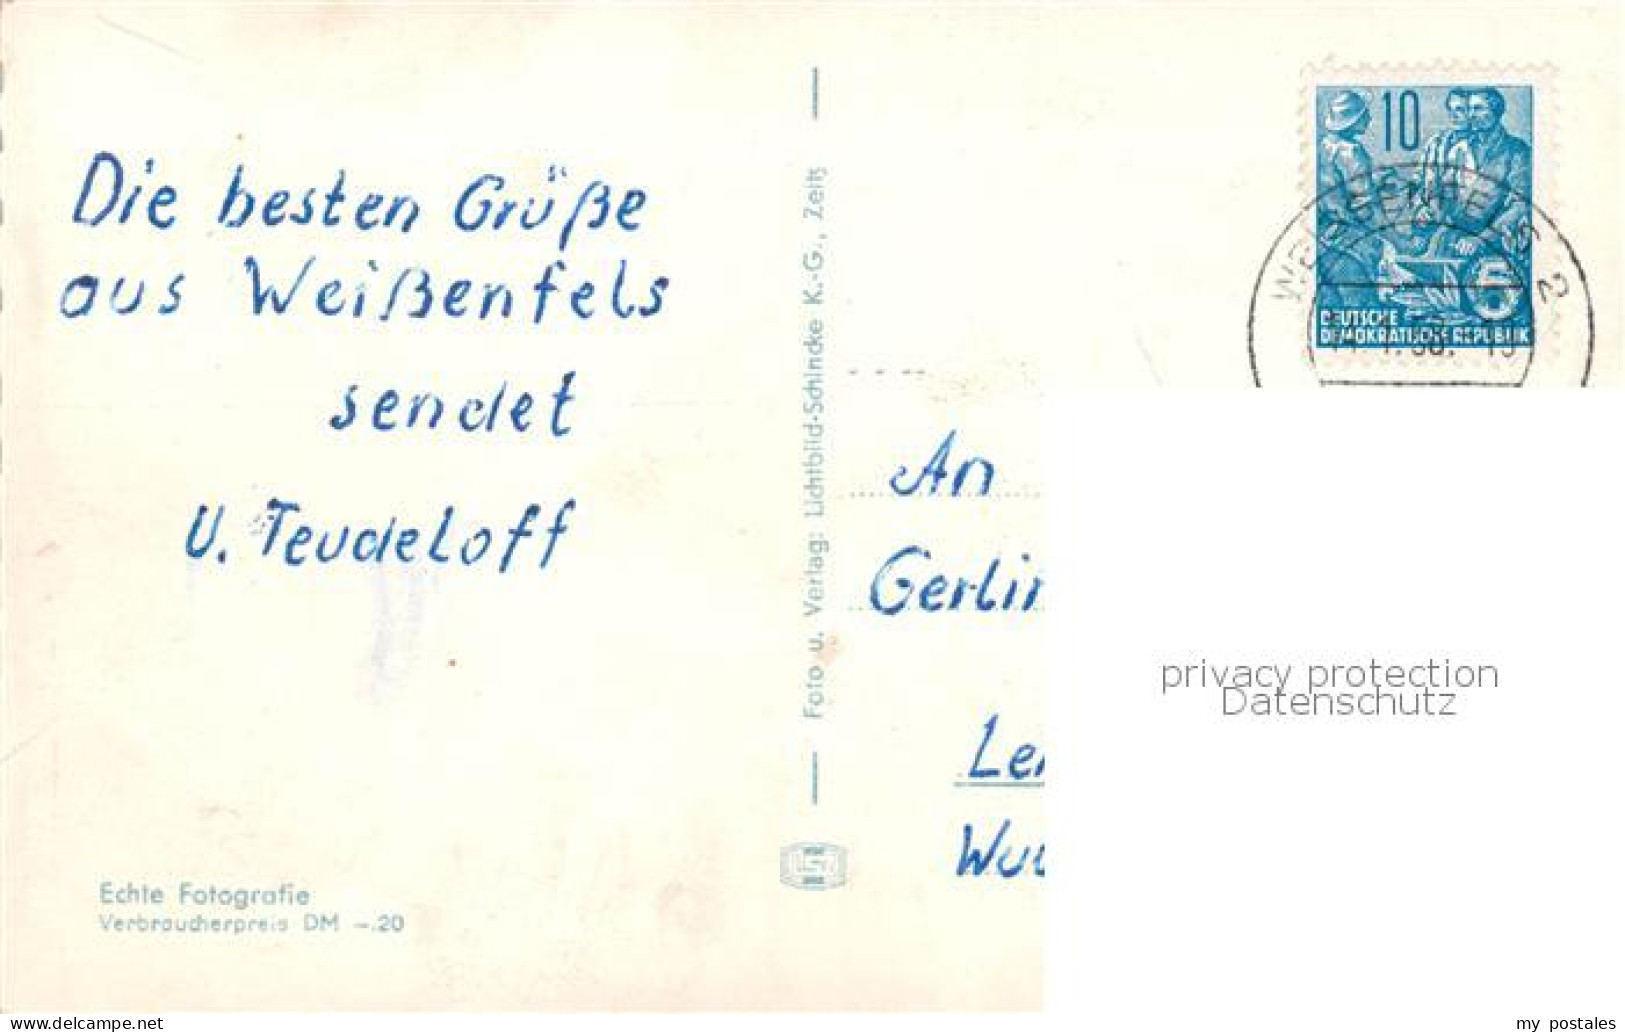 Die besten Grüße
aus Weißenfels
sendet
U. Teudeloff
Echte Fotografie
Verbraucherpreis DM –.20
Foto u. Verlag: Lichtbild-Schincke K.-G., Zeitz
10
5
DEUTSCHE
DEMOKRATISCHE REPUBLIK
WEISSENFELS 2
An
privacy protection
Datenschutz
www.delcampe.net
my_postales